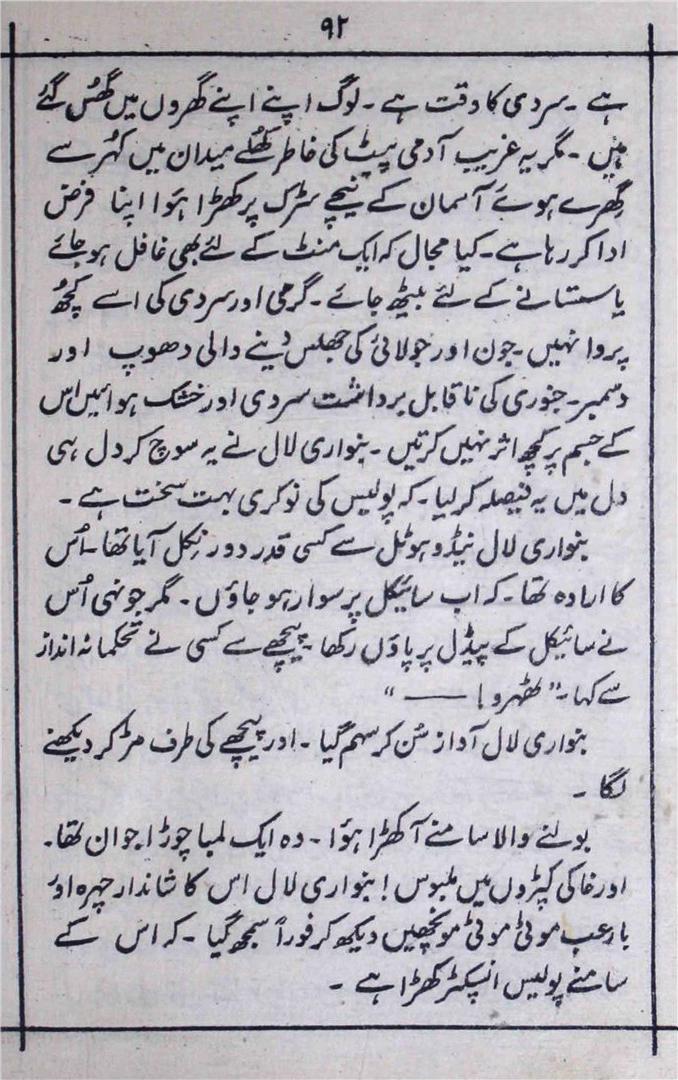 ۹۲
ہے ۔ سردی کا وقت ہے ۔ لوگ اپنے اپنے گھروں میں گھُس گئے
ہیں ۔ مگر یہ غریب آدمی پیٹ کی خاطر کھُلے میدان میں کہُر سے
گھِرے ہوئے آسمان کے نیچے سڑک پر کھڑا ہؤا اپنا فرض
ادا کر رہا ہے ۔ کیا مجال کہ ایک منٹ کے لئے بھی غافل ہو جائے
یا سستانے کے لئے بیٹھ جائے ۔ گرمی اور سردی کی اسے کچھُ
پروا نہیں ۔ جون اور جولائی کی جھلس دینے والی دھوپ اور
دسمبر ۔ جنوری کی ناقابل برداشت سردی اور خشک ہوائیں اس
کے جسم پر کچھ اثر نہیں کرتیں ۔ بنواری لال نے یہ سوچ کر دل ہی
دل میں یہ فیصلہ کر لیا ۔ کہ پولیس کی نوکری بہت سخت ہے ۔
بنواری لال نیڈو ہوٹل سے کسی قدر دور نِکل آیا تھا ۔ اُس
کا ارادہ تھا ۔ کہ اب سائیکل پر سوار ہو جاؤں ۔ مگر جونہی اُس
نے سائیکل کے پیڈل پر پاؤں رکھا ۔ پیچھے سے کسی نے تحکمانہ انداز
سے کہا ۔ ” ٹھہرو ! —— “
بنواری لال آواز سُن کر سہم گیا ۔ اور پیچھے کی طرف مڑ کر دیکھنے
لگا ۔
بولنے والا سامنے آ کھڑا ہؤا ۔ وہ ایک لمبا چوڑا جوان تھا ۔
اور خاکی کپڑوں میں ملبوس ! بنواری لال اس کا شاندار چہرہ اور
بارعب موٹی موٹی مونچھیں دیکھ کر فوراً سمجھ گیا ۔ کہ اس کے
سامنے پولیس انسپکٹر کھڑا ہے ۔